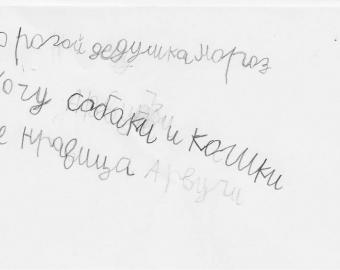 орогой дедушка мороз
хочу собаки и кошки
е нравица Арвучи